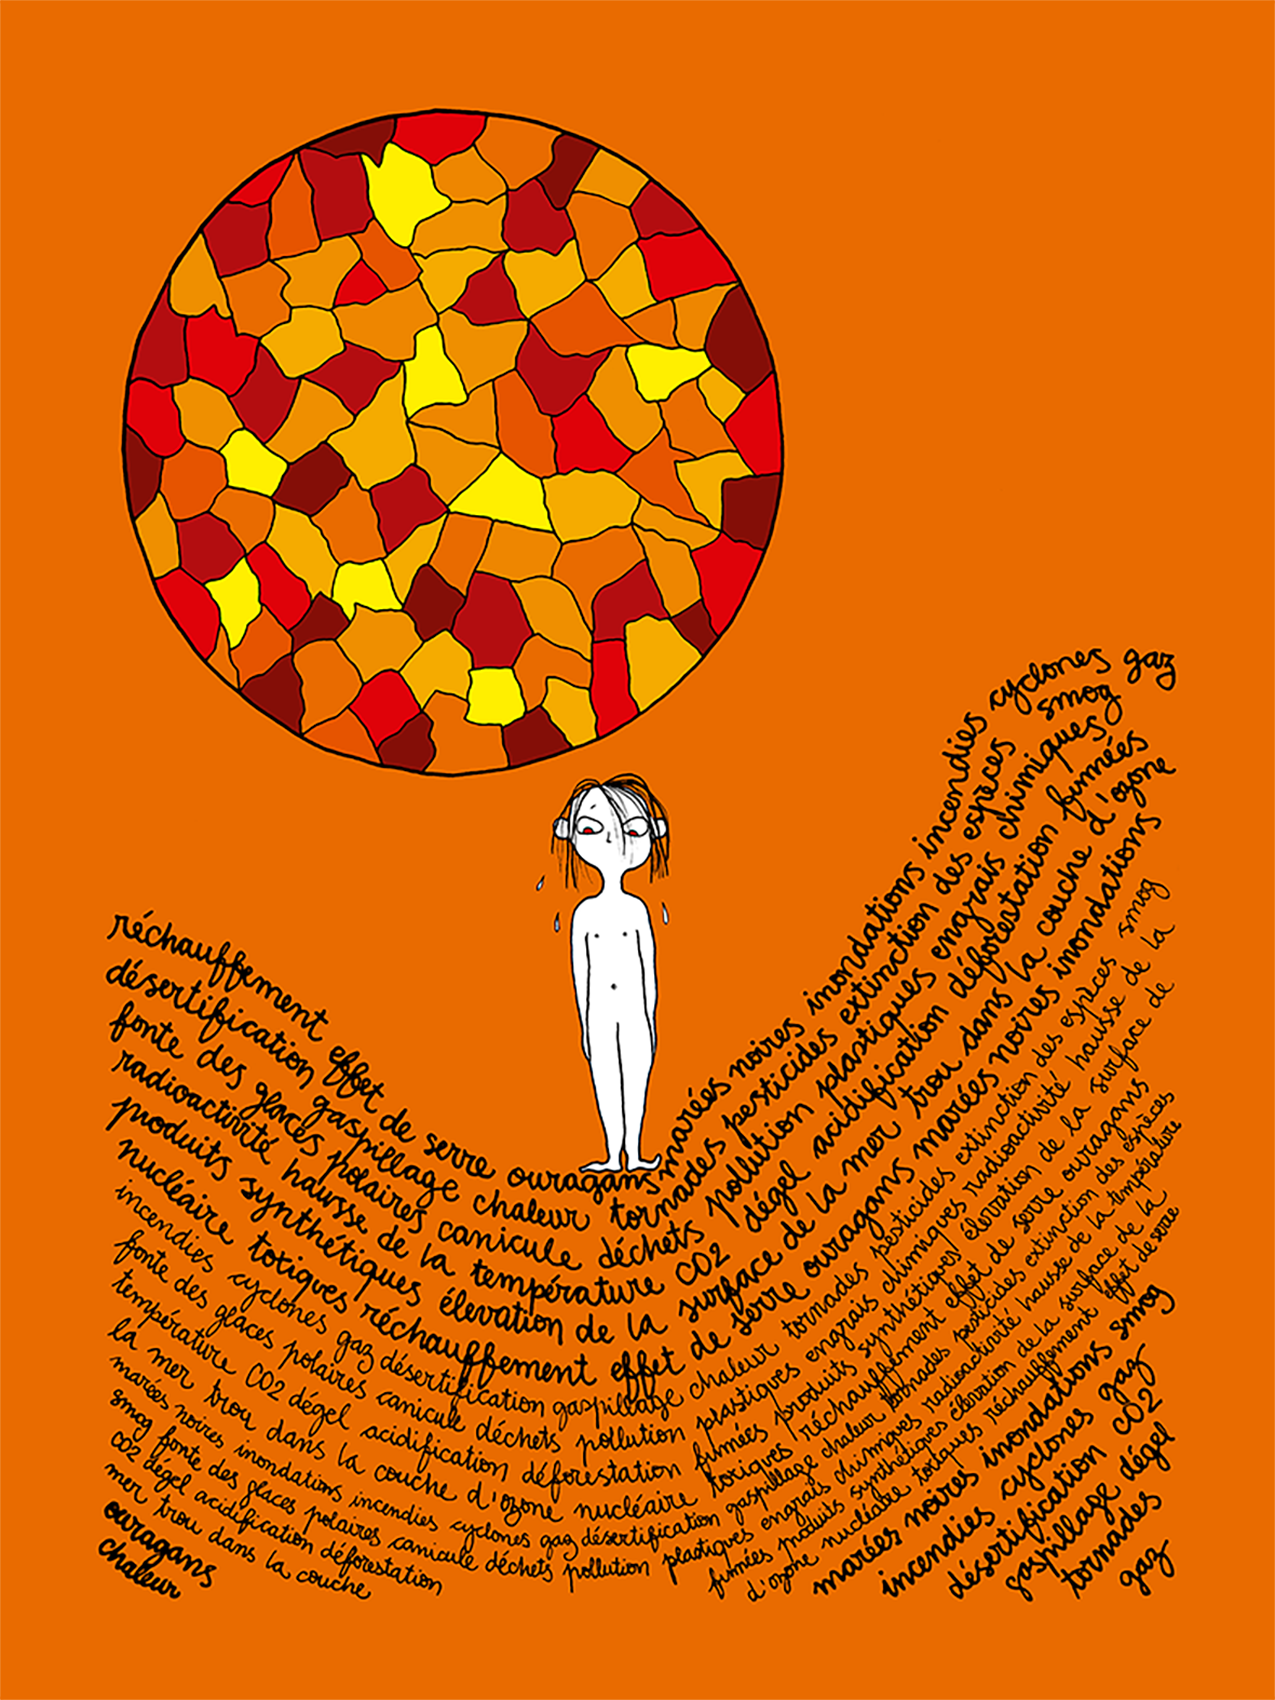 réchauffement effet de serre ouragans marées noires inondations incendies cyclones gaz
désertification gaspillage chaleur tornades pesticides extinction des espèces smog
fonte des glaces polaires canicule déchets pollution plastiques engrais chimiques
radioactivité hausse de la température CO2 dégel acidification déforestation fumées
produits synthétiques élevation de la surface de la mer trou dans la couche d'ozone
nucléaire toxiques réchauffement effet de serre ouragans marées noires inondations
incendies cyclones gaz désertification gaspillage chaleur tornades pesticides extinction des espèces smog
fonte des glaces polaires canicule déchets pollution plastiques engrais chimiques radioactivité hausse de la
température CO2 dégel acidification déforestation fumées produits synthétiques élevation de la surface de
la mer trou dans la couche d'ozone nucléaire toxiques réchauffement effet de serre ouragans
marées noires inondations incendies cyclones gaz désertification gaspillage chaleur tornades pesticides extinction des espèces
smog fonte des glaces polaires canicule déchets pollution plastiques engrais chimiques radioactivité hausse de la température
CO2 dégel acidification déforestation fumées produits synthétiques élevation de la surface de la
mer trou dans la couche d'ozone nucléaire toxiques réchauffement effet de serre
ouragans marées noires inondations smog
chaleur incendies cyclones gaz
désertification CO2
gaspillage dégel
tornades
gaz